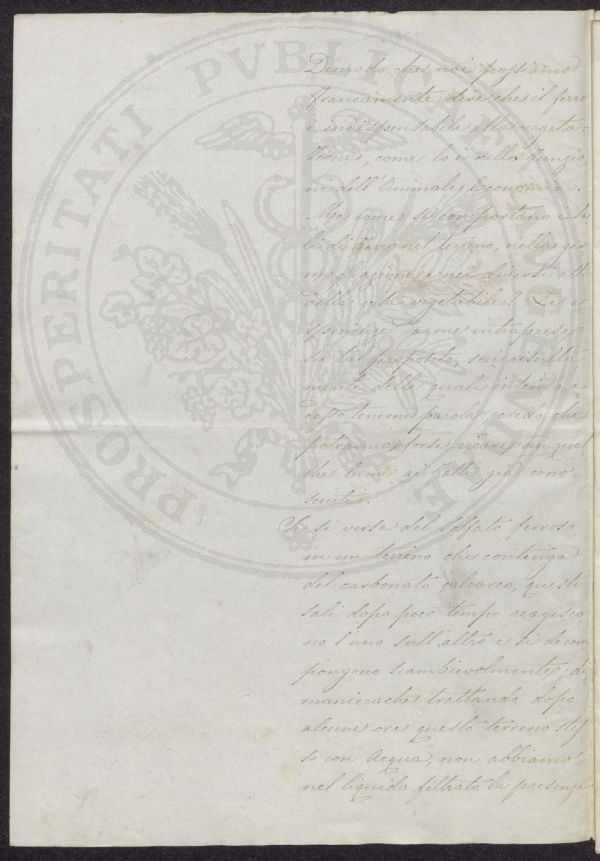 PROSPERITATI PVBLICAE AVGENDAE
Dimodo che noi possiamo
francamente dire che il ferro
è indispensabile alla vegeta-
zione, come lo è nella funzio
ne dell'Animale Economia.
Ma come si comportano i sa
li di ferro nel terreno, nella ger
mogliazione e nei diversi
della vita vegetabile? Le e
sperienze da me intraprese
su tal proposito, sui risulta
menti delle quali intendo a
desso tenerne parola, credo che
potranno forse recare un qual
che lume ai fatti già cono-
sciuti.
Se si versa del solfato ferroso
in un terreno che contenga
del carbonato calcareo, questi
sali dopo poco tempo reagisco
no l'uno sull'altro e si decom
pongono scambievolmente; di
manierache trattando dopo
alcune ore questo terreno stes
so con Acqua, non abbiamo
nel liquido filtrato la presenza